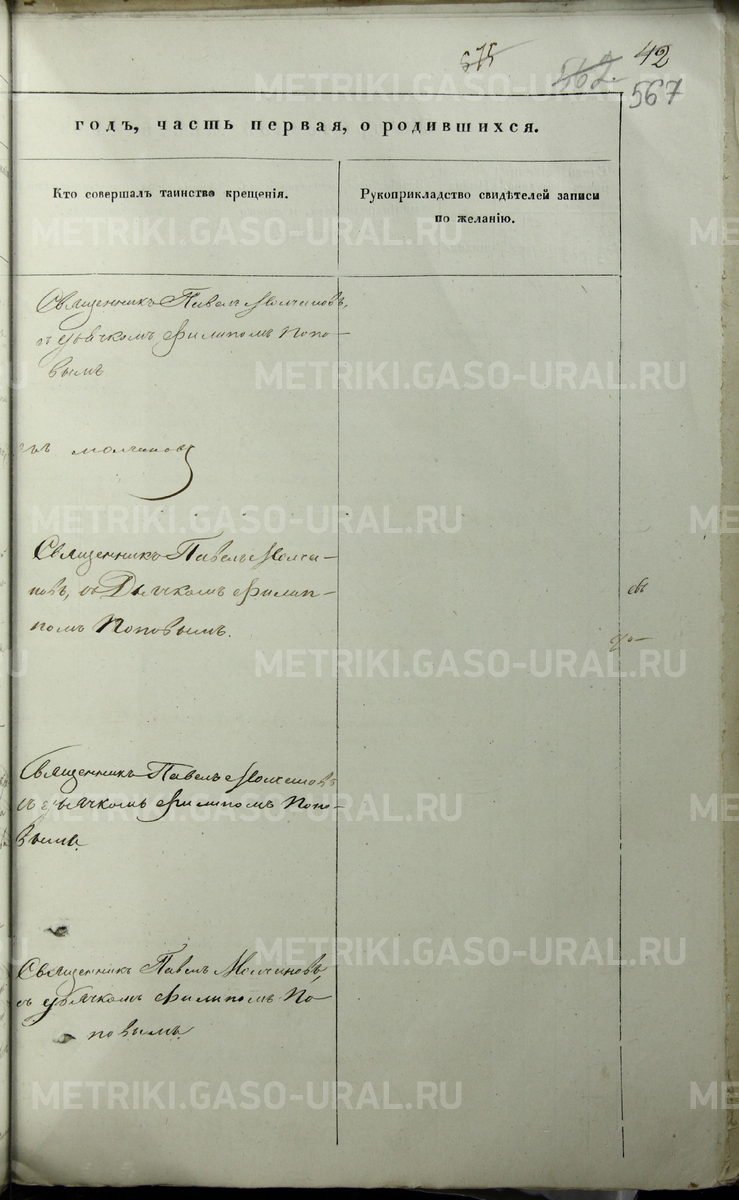 575 562. 42
567
годъ, часть первая, о родившихся.
Кто совершалъ таинство крещенія.
Рукоприкладство свидѣтелей записи
по желанію.
Священникъ Павелъ Молчановъ,
съ дьячкомъ Филипомъ Попо-
вымъ
Молчановъ
Священникъ Павелъ Молча-
новъ, съ Дьячкомъ Филип-
помъ Поповымъ.
Священникъ Павелъ Молчановъ
съ дьячкомъ Филипомъ Попо-
вымъ.
Священникъ Павелъ Молчановъ,
съ дьячкомъ Филипомъ По-
повымъ.
METRIKI.GASO-URAL.RU